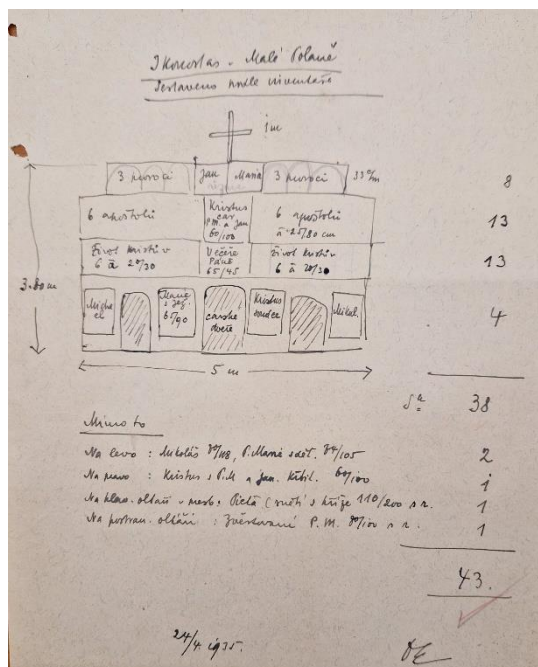 Ikonostas - Malé Polaně
Sestaveno podle inventáře
1m
3 proroci
Jan
Maria
3 proroci
33 c/m
8
6 apoštolů
Kristus
car
P.M. a Jan
60/100
6 apoštolů
à 25/80 cm
13
Život Kristův
6 à 20/30
Večeře
Páně
65/45
Život Kristův
6 à 20/30
13
3.80m
Micha
el
Marie
s Jez.
65/90
carske
dveře
Kristus
soudce
Mikul.
4
5 m
Sa 38
Mimo to
Na levo : Mikoláš P. Marie s dět. 74/105
2
Na pravo : Kristus s P.M a Jan. Křtit. 60/100
1
Na hlav. oltáři : Pietà ( snětí s kříže 110/200 s r.
1
Na postran. oltáři : Zvěstování P. M. 80/100 s r.
1
43.
24/4 1935.